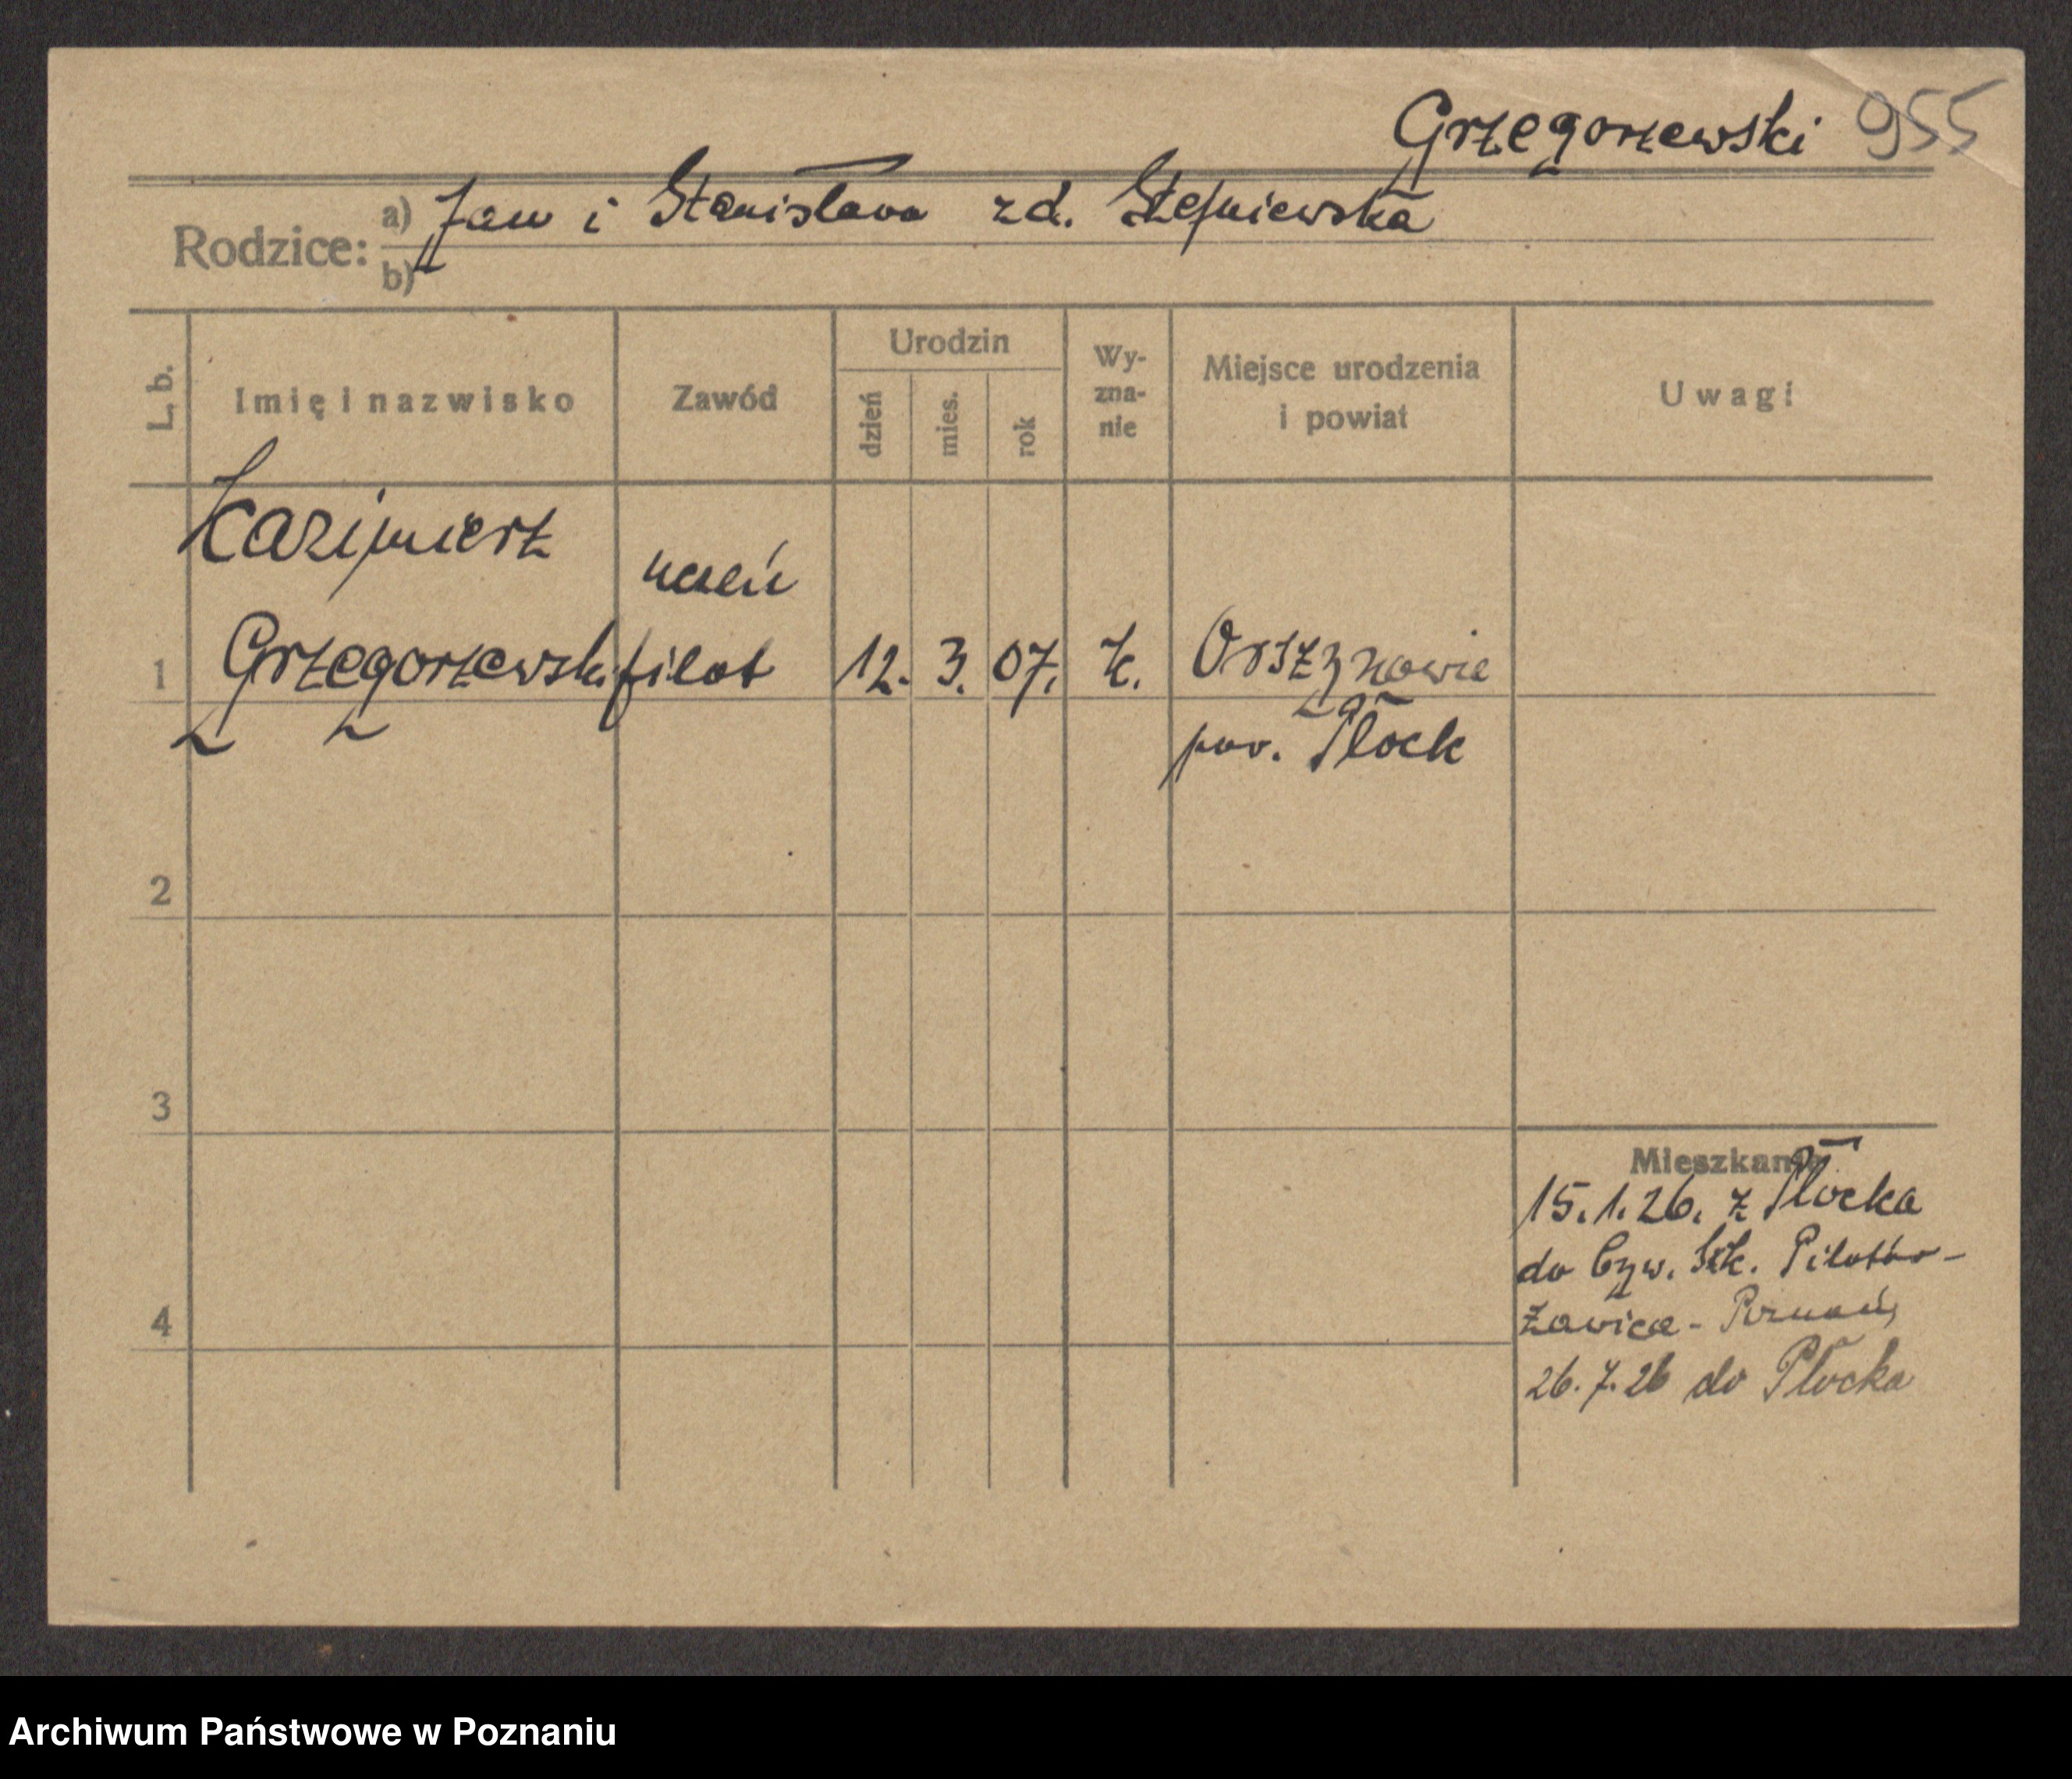 Grzegorzewski 955
Rodzice: a) Jan i Stanisława zd. Stefniewska
b)
L. b.
Imię i nazwisko
Zawód
Urodzin
dzień
mies.
rok
Wy-
zna-
nie
Miejsce urodzenia
i powiat
Uwagi
Kazimierz
uczeń
1 Grzegorzewski pilot 12. 3. 07. k. Orszynowie
pow. Płock
2
3
Mieszkanie
15.1.26. z Płocka
do Cyw. Szk. Pilotów-
4 Ławica - Poznań,
26.7.26 do Płocka
Archiwum Państwowe w Poznaniu